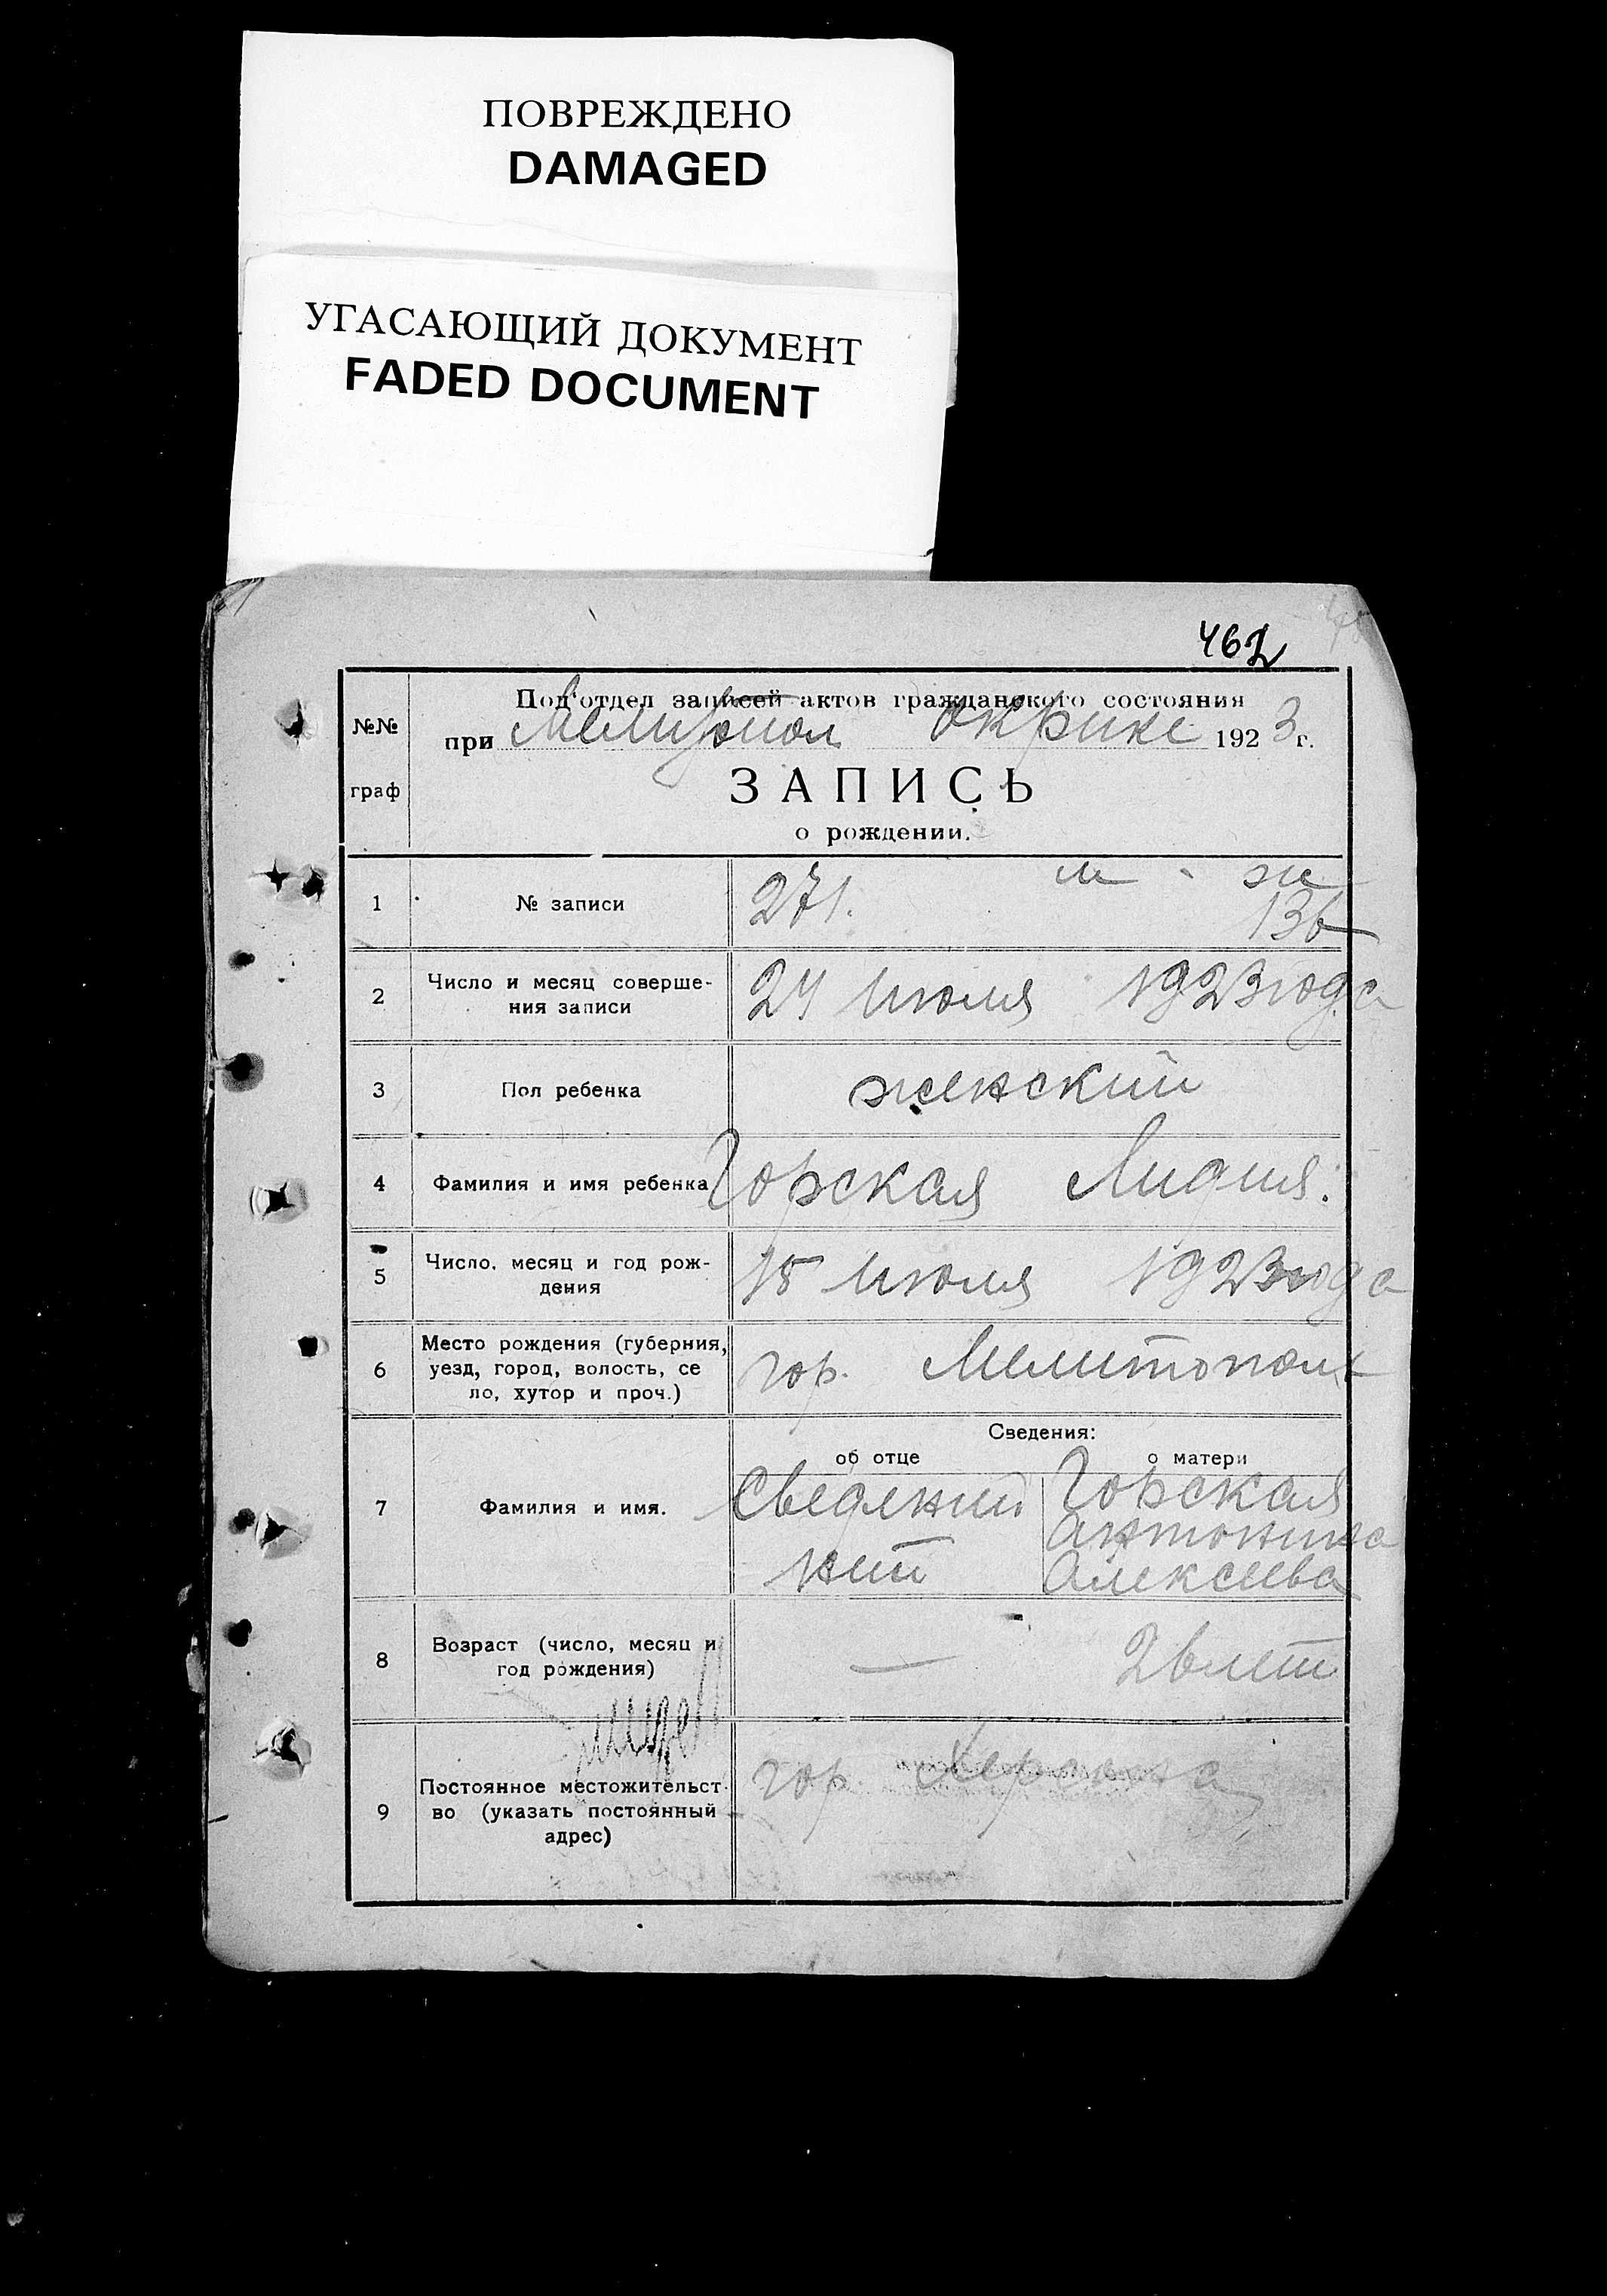 ПОВРЕЖДЕНО
DAMAGED
УГАСАЮЩИЙ ДОКУМЕНТ
FADED DOCUMENT
462
№№
граф
Под'отдел записей актов гражданского состояния
при Мелитопол Окрике 1923 г.
ЗАПИСЬ
о рождении.
м - ж
1 № записи 271. 136
2 Число и месяц соверше-
ния записи 24 Июля 1923 года
3 Пол ребенка женский
4 Фамилия и имя ребенка Горская Лидия.
5 Число, месяц и год рож-
дения 15 Июля 1923 года
6 Место рождения (губерния,
уезд, город, волость, се
ло, хутор и проч.) гор. Мелитополь
Сведения:
об отце о матери
7 Фамилия и имя. Сведений нет
Горская
Антонина
Алексеева
8 Возраст (число, месяц и
год рождения) — 26 лет
9 Постоянное местожительст-
во (указать постоянный
адрес) гор. Херсона